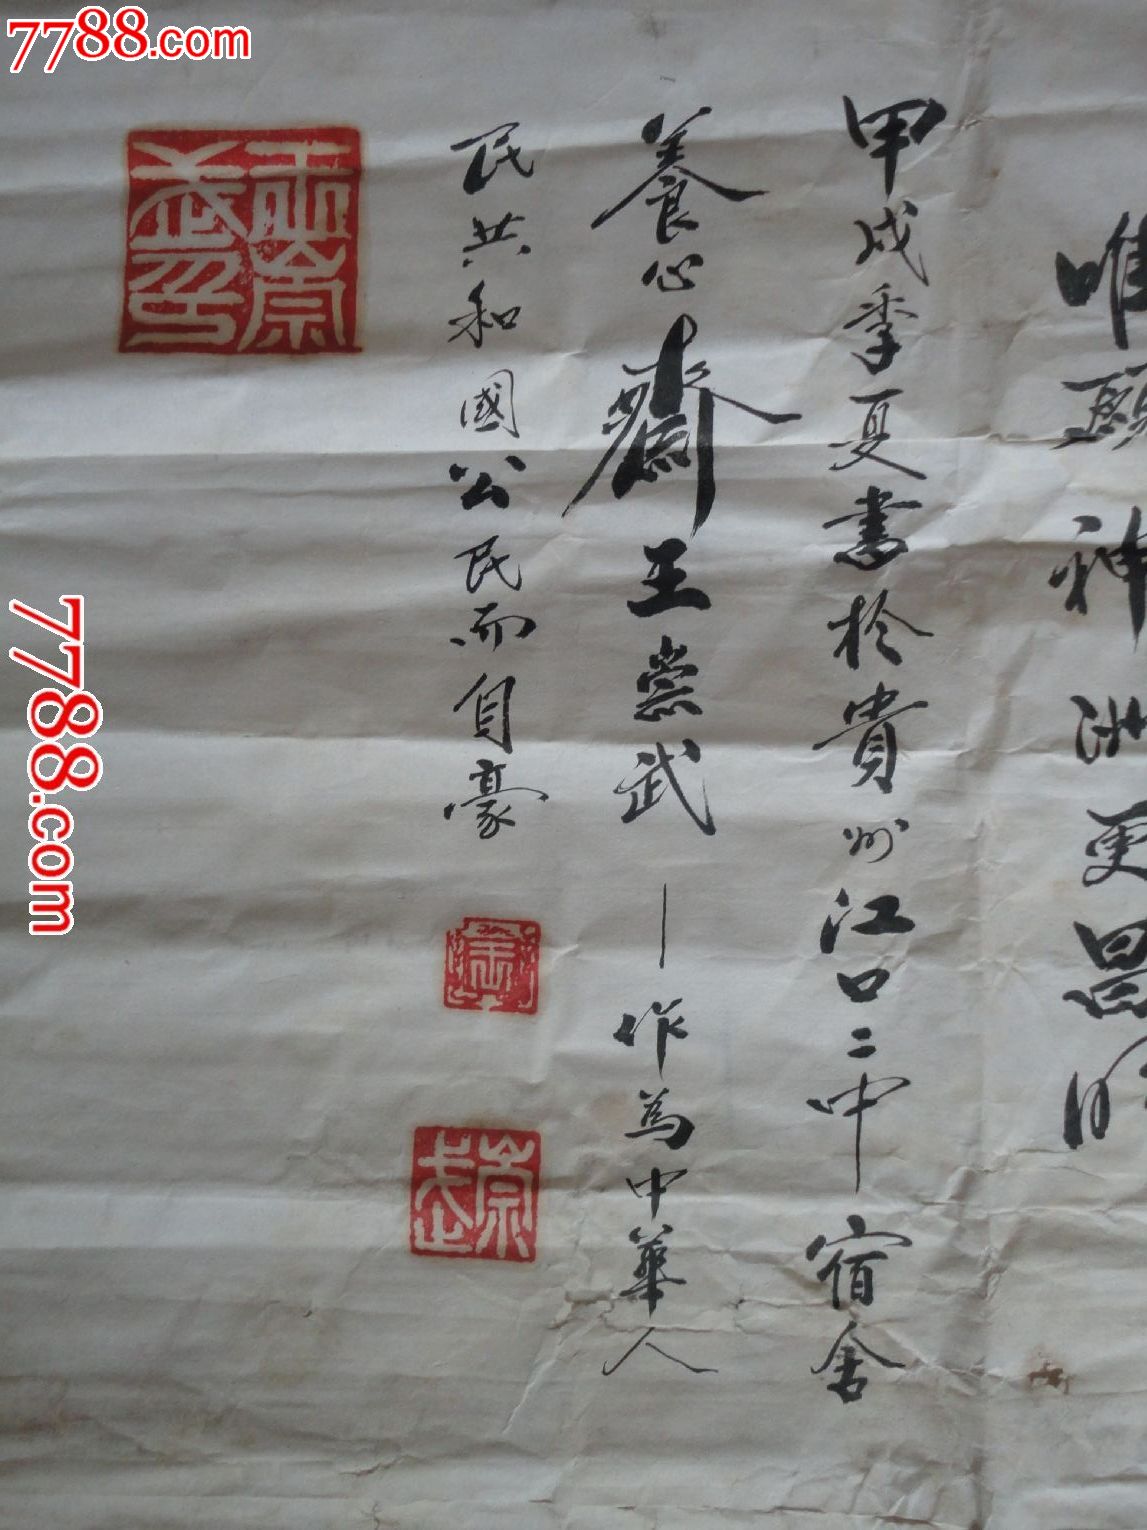 7788.com
唯願神洲更昌明
甲戌季夏書於貴州江口二中宿舍
養心齋王崇武—作為中華人
民共和國公民而自豪
王崇武印
崇武
7788.com